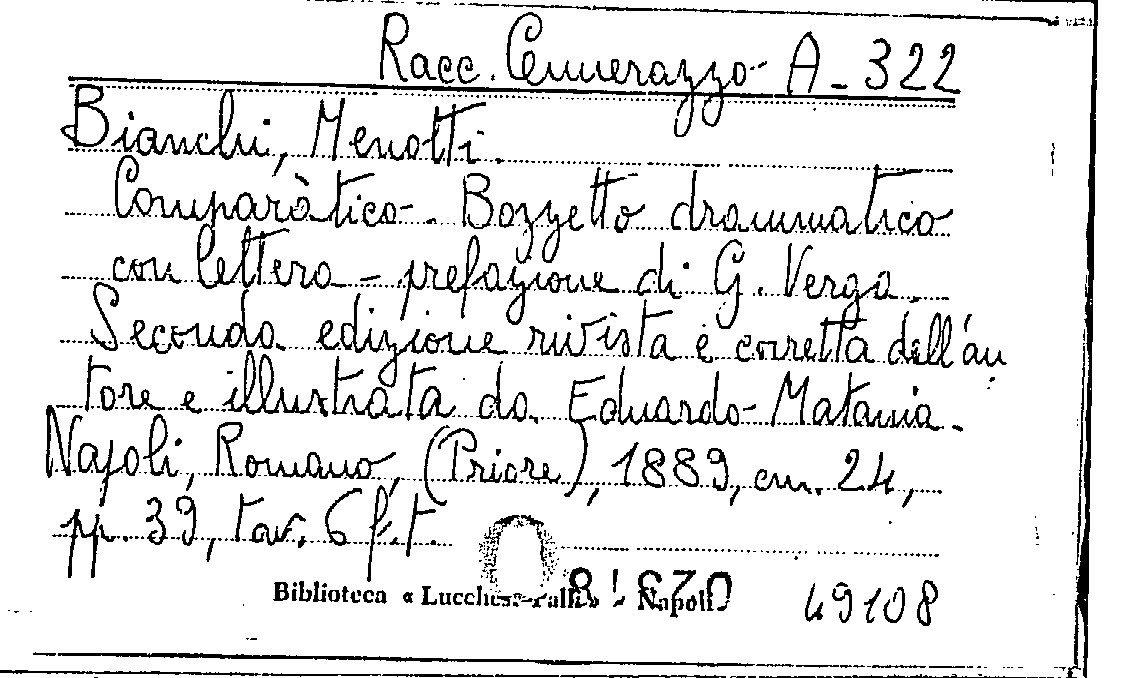 Racc. Cennerazzo A-322
Bianchi, Menotti.
Comparàtico. Bozzetto drammatico
con lettera-prefazione di G. Verga.
Seconda edizione rivista e corretta dell'au
tore e illustrata da Eduardo Matania.
Napoli, Romano, (Priore), 1889, cm. 24,
pp. 39, tav. 6 f.t.
Biblioteca « Lucchesi-Palli » - Napoli
49108